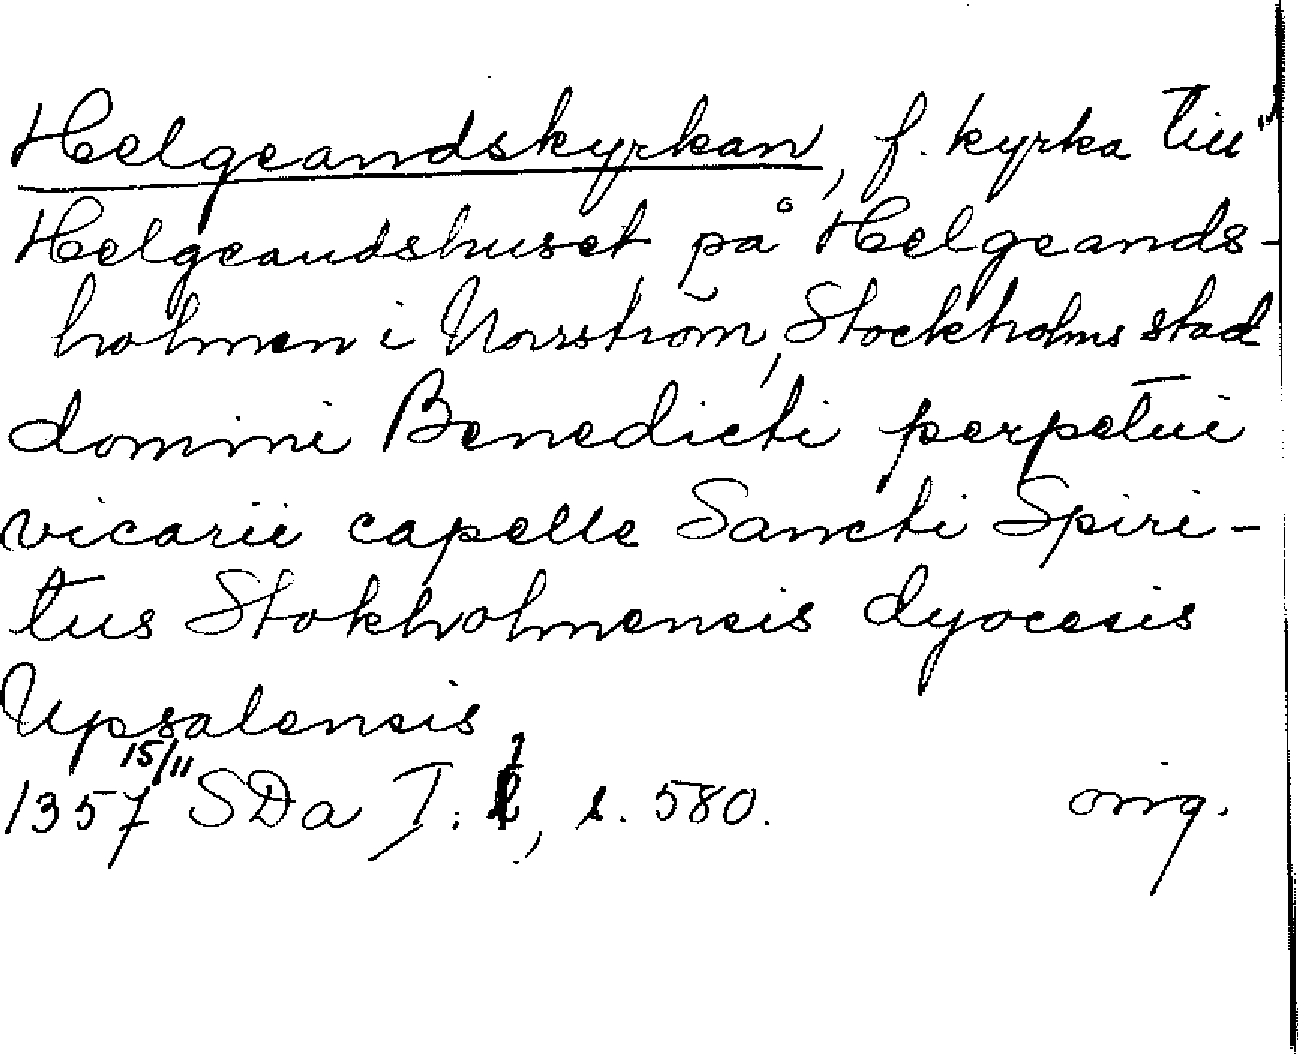 Helgeandskyrkan, f. kyrka till
Helgeandshuset på Helgeands-
holmen i Norrström, Stockholms stad
domini Benedicti perpetui
vicarii capelle Sancti Spiri-
tus Stokholmensis dyocesis
Upsalensis
1357 15/11 SDa I:1, s. 580. orig.